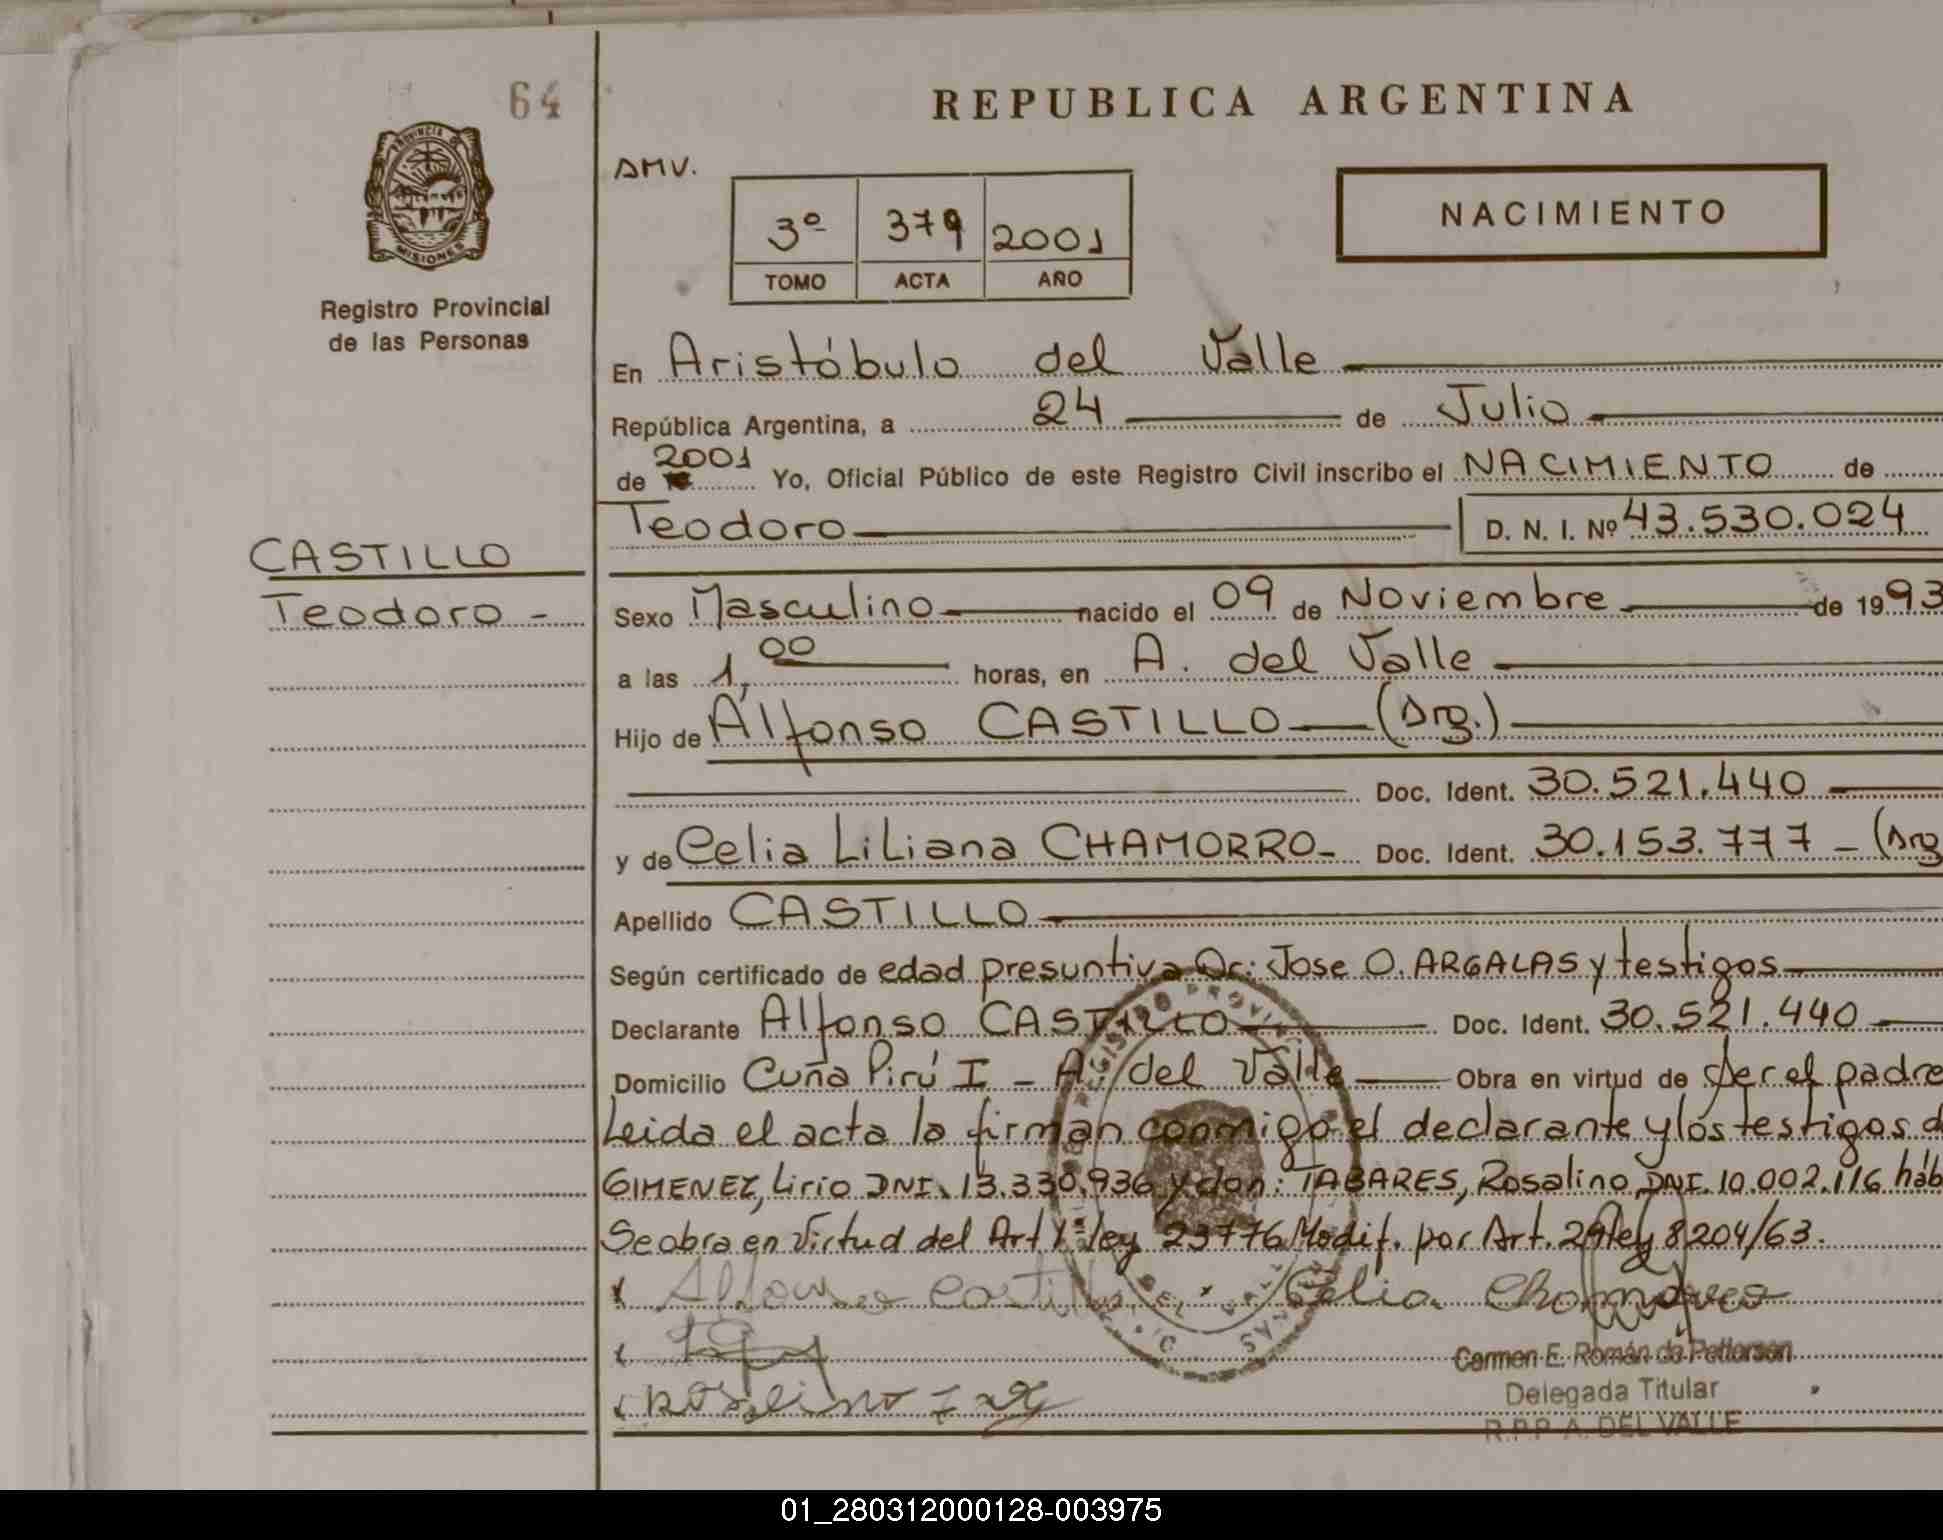 64
REPUBLICA ARGENTINA
PROVINCIA DE
MISIONES
Registro Provincial
de las Personas
AMV.
3º 379 2001
TOMO ACTA AÑO
NACIMIENTO
En Aristóbulo del Valle
República Argentina, a 24 de Julio
de 2001 Yo, Oficial Público de este Registro Civil inscribo el NACIMIENTO de
Teodoro D. N. I. Nº 43.530.024
CASTILLO
Teodoro -
Sexo Masculino nacido el 09 de Noviembre de 1993
a las 1,00 horas, en A. del Valle
Hijo de Alfonso CASTILLO (Arg.)
Doc. Ident. 30.521.440
y de Celia Liliana CHAMORRO- Doc. Ident. 30.153.777 - (Arg
Apellido CASTILLO
Según certificado de edad presuntiva Dr: Jose O. ARGALAS y testigos
Declarante Alfonso CASTILLO Doc. Ident. 30.521.440
Domicilio Cuña Pirú I - A. del Valle Obra en virtud de Ser el padre
Leida el acta la firman conmigo el declarante y los testigos d
GIMENEZ, Lirio DNI. 13.330.936 y don: TABARES, Rosalino DNI. 10.002.116 háb
Se obra en Virtud del Art 1º ley 23776 Modif. por Art. 29 ley 8204/63.
Alfonso Castillo Celia Chamorro
Carmen E. Román de Petterson
Rosalino
Delegada Titular
R.P.P. A. DEL VALLE
01_280312000128-003975